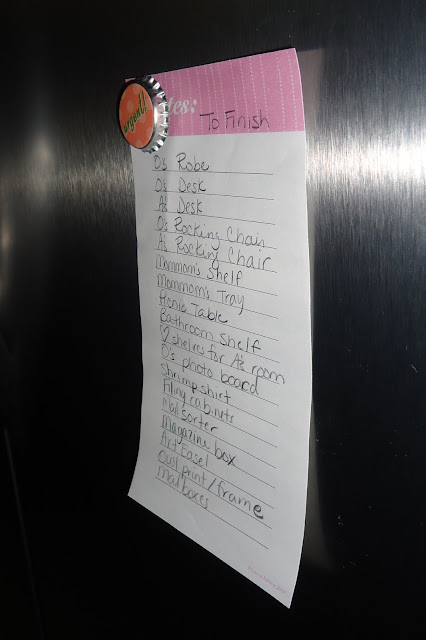 urgent!
Notes:
To Finish
O's Robe
O's Desk
A's Desk
O's Rocking Chair
A's Rocking Chair
Mommom's Shelf
Mommom's Tray
Picnic Table
Bathroom Shelf
♡ shelves for A's room
O's photo board
Shrimp shirt
Filing cabinets
Mail sorter
Magazine box
Art Easel
Owl print/frame
Mail boxes